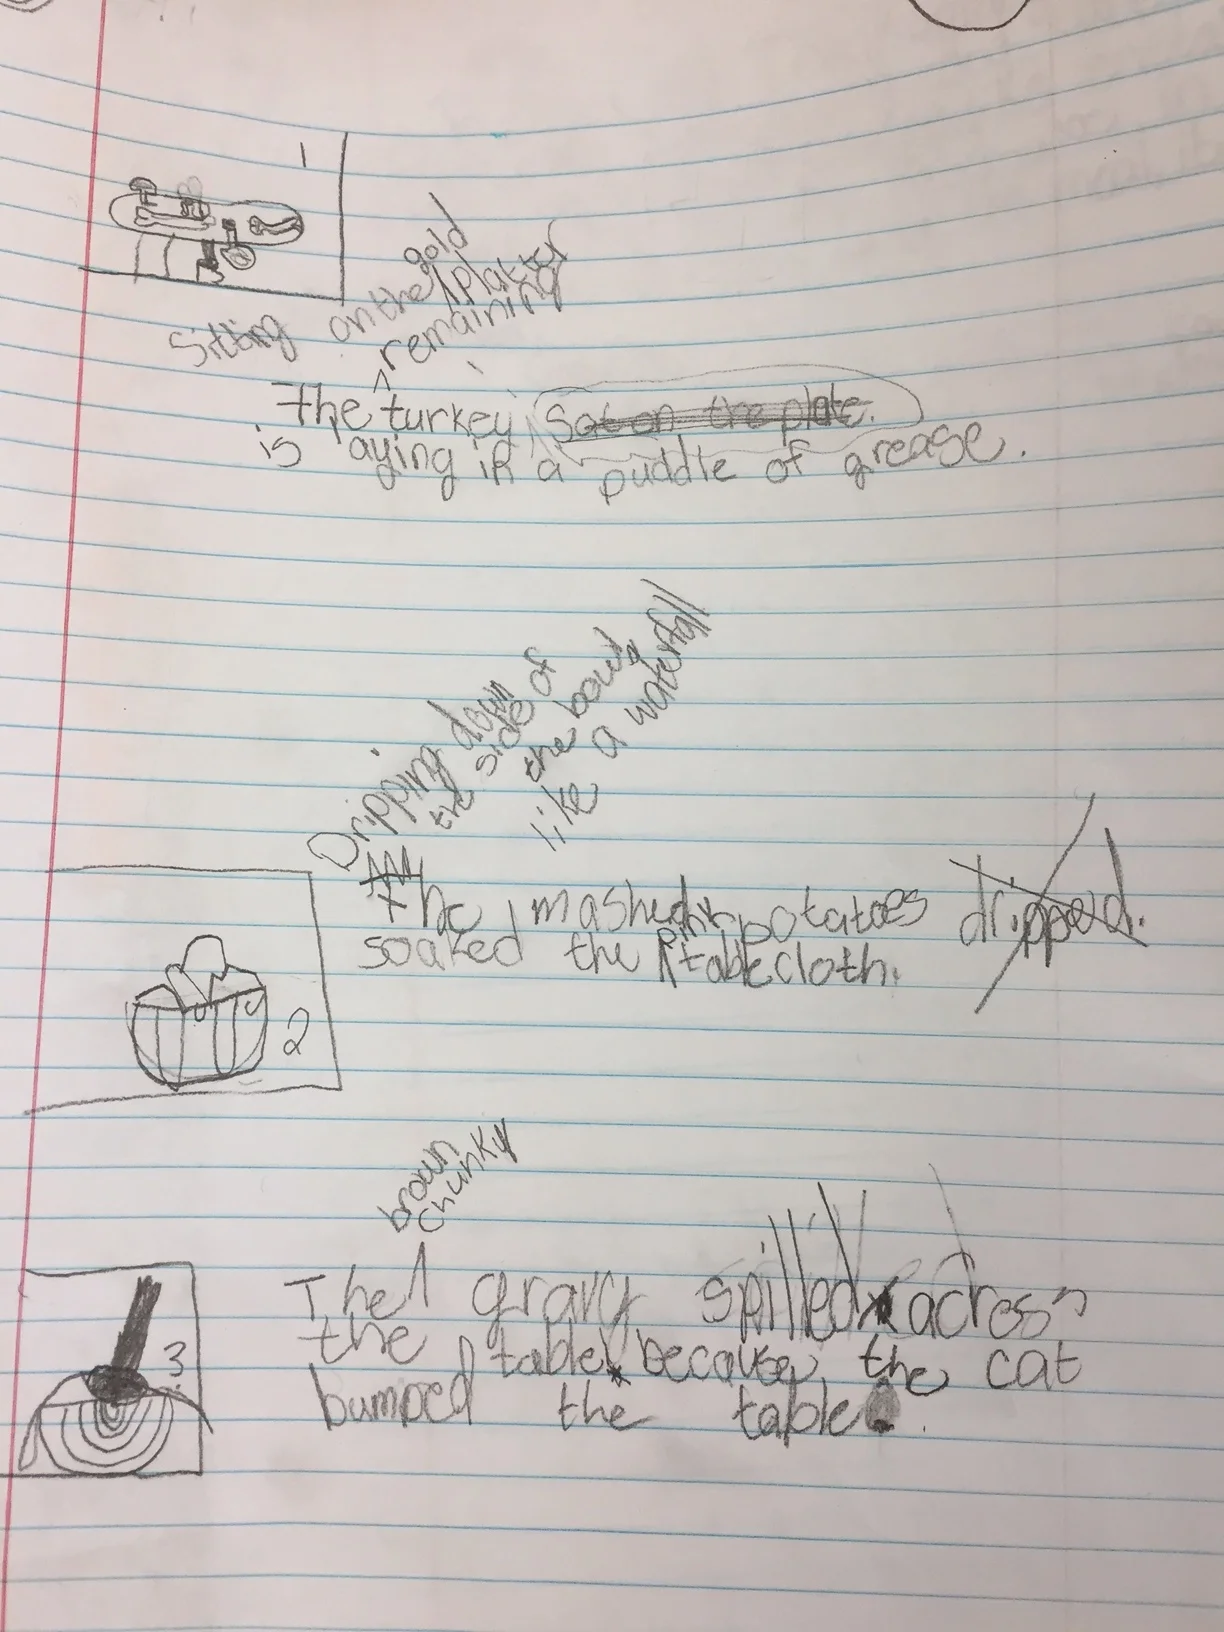 1
gold
Sitting on the platter
remaining
The turkey Sat on the plate.
is laying in a puddle of grease.
Dripping down
the side of
the bowl,
like a waterfall
the mashed potatoes dripped.
soaked the pink tablecloth.
2
brown
chunky
The gravy spilled across
the table because the cat
bumped the table.
3